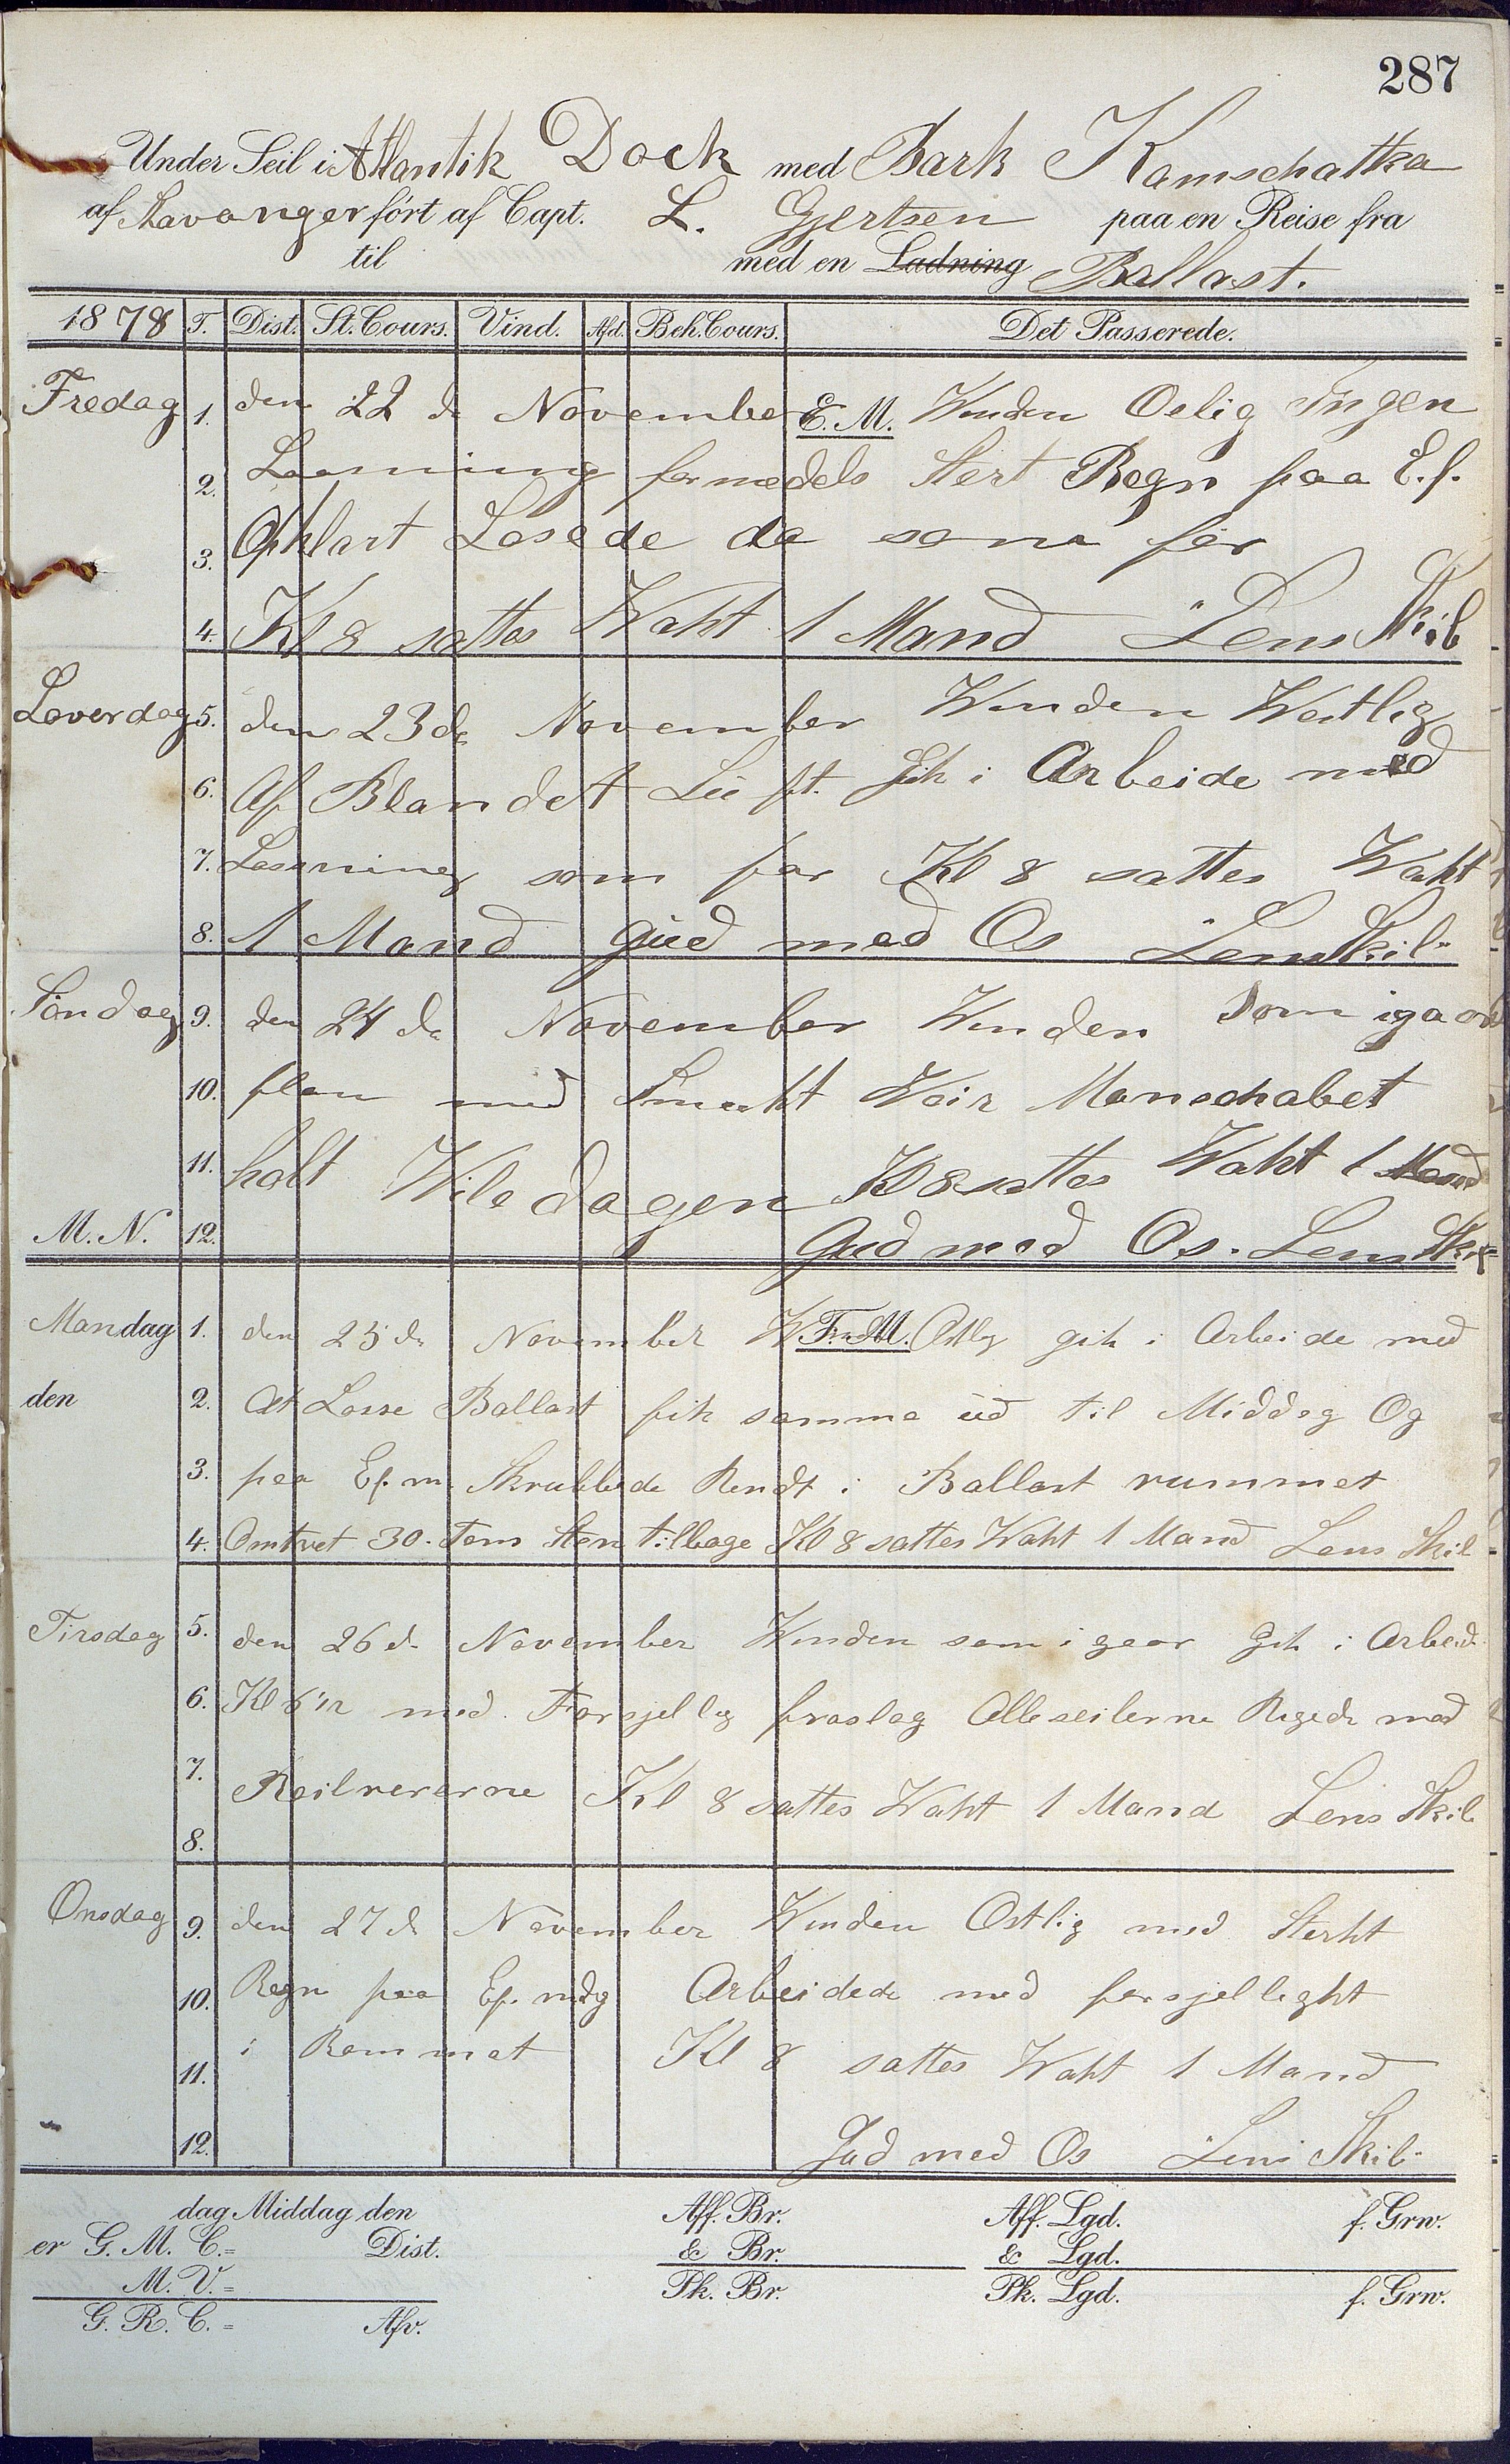 287
Under Seil i Atlantik Dock med Bark Kamschatka
af Stavanger fört af Capt. L. Gjertsen paa en Reise fra
til med en Ladning Ballast.
1878 T. Dist. St. Cours. Vind. Afd. Beh. Cours. Det Passerede.
Fredag 1. den 22 de November E. M. Vinden Oslig Ingen
2. Losning formedels Stert Regn paa E. f.
3. Opklart Losede da som for
4. Kl 8 sattes Waht 1 Mand Lens Skib
Loverdag 5. den 23 de November Winden Westlig
6. Af Blandet Luft. Gik i Arbeide med
7. Lossning som for Kl 8 sattes Waht
8. 1 Mand Gud med Os Lens Skib
Söndag 9. den 24 de November Winden Som igaar
10. flau med Smukt Veir Manschabet
11. holt Wiledagen Kl 8 sattes Waht 1 Mand
M. N. 12. Gud med Os. Lens Skib
Mandag 1. den 25 de November W F. M. Ostlig gik i Arbeide med
den 2. At Losse Ballast fik samme ud til Middag Og
3. paa Ef. m. Skrubbede Rendt i Ballast rummet
4. Omtret 30. Tons Sten tilbage Kl 8 sattes Waht 1 Mand Lens Skib
Tirsdag 5. den 26 d. November Winden som i gaar Gik i Arbeid
6. Kl med Forsjellig fraslag Alle seilerne Regede med
7. Kl 8 sattes Waht 1 Mand Lens Skib
8.
Onsdag 9. den 27 d November Winden Ostlig med Sterkt
10. Regn paa Ef. mdg Arbeidede med forsjelleght
11. i Rommet Kl 8 sattes Waht 1 Mand
12. Gud med Os Lens Skib
dag Middag den Aff. Br. Aff. Lgd. f. Grw.
er G. M. C.= Dist. & Br. & Lgd.
M. V.= Pk. Br. Pk. Lgd. f. Grw.
G. R. C.= Afv.